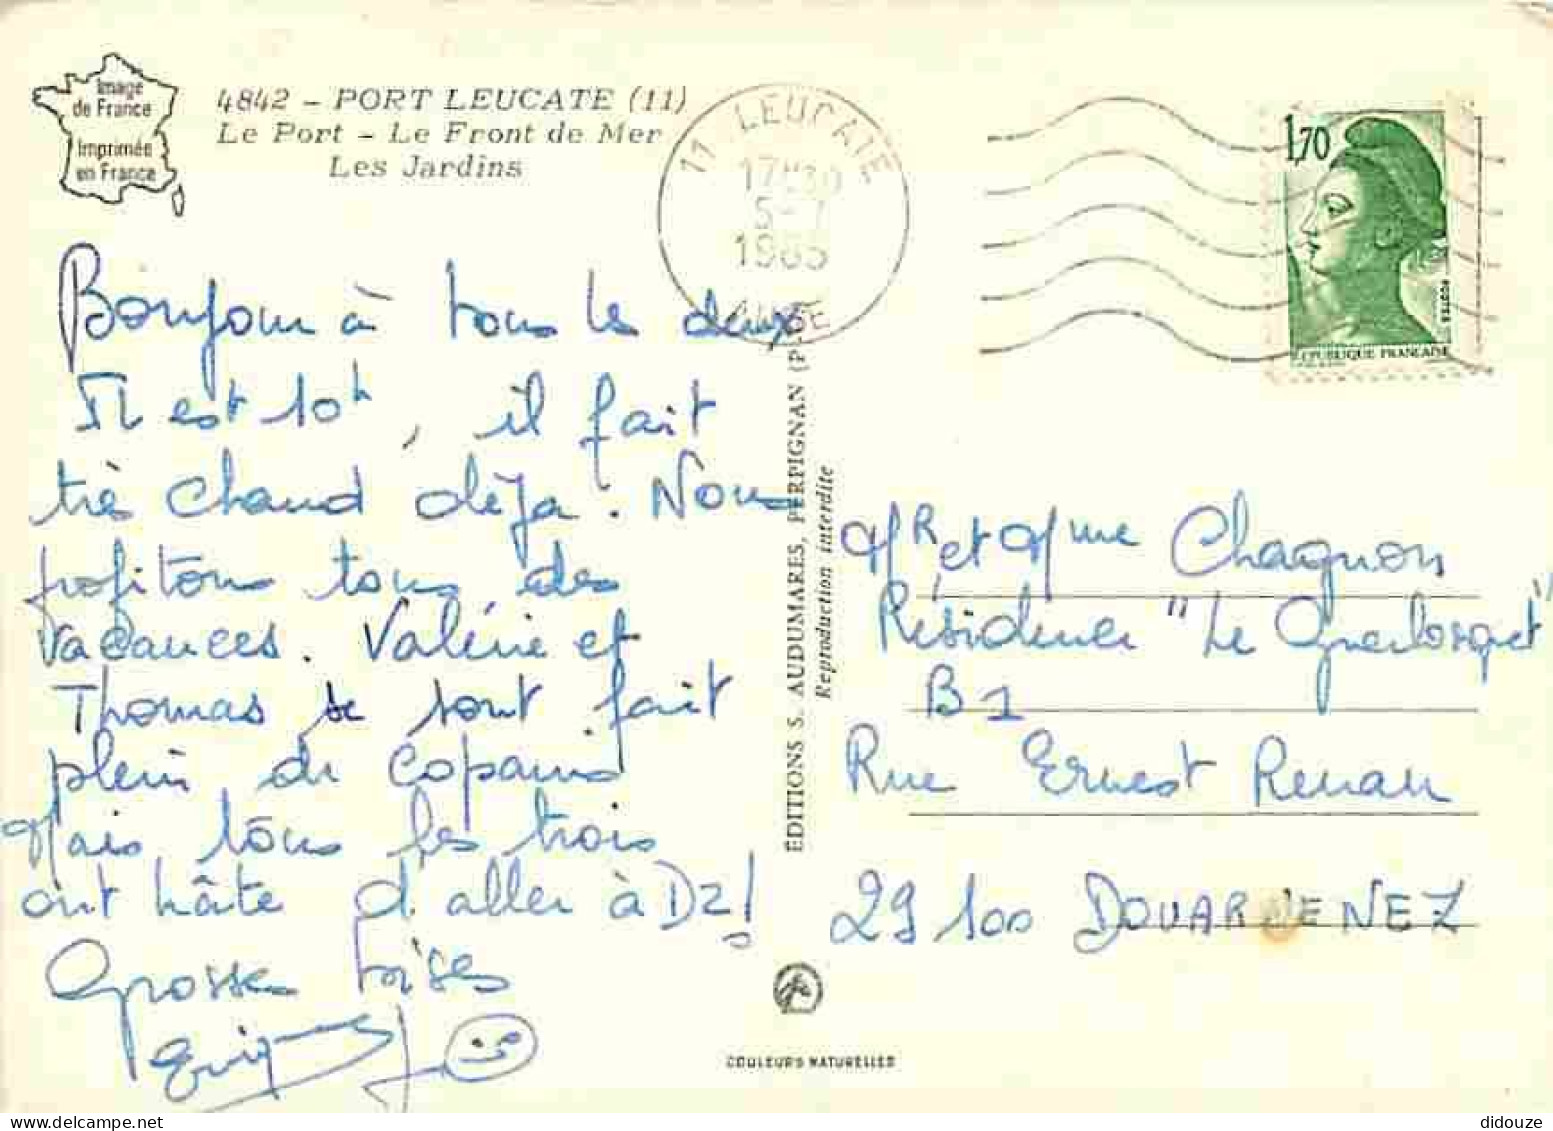 Image
de France
Imprimée
en France
4842 - PORT LEUCATE (11)
Le Port - Le Front de Mer
Les Jardins
11 LEUCATE
17H30
5-7
1985
AUDE
1,70
POSTES
REPUBLIQUE FRANCAISE
Bonjour à tous les deux
Il est 10h, il fait
très chaud déjà. Nous
profitons tous des
vacances. Valérie et
Thomas se sont fait
plein de copains
Mais tous les trois
ont hâte d'aller à DZ!
Grosses bises
ÉDITIONS S. AUDUMARES, PERPIGNAN (P.
Reproduction interdite
Mr et Mme Chagnon
Résidence "Le Guerlosquet"
B1
Rue Ernest Renan
29100 DOUARNENEZ
COULEURS NATURELLES
didouze